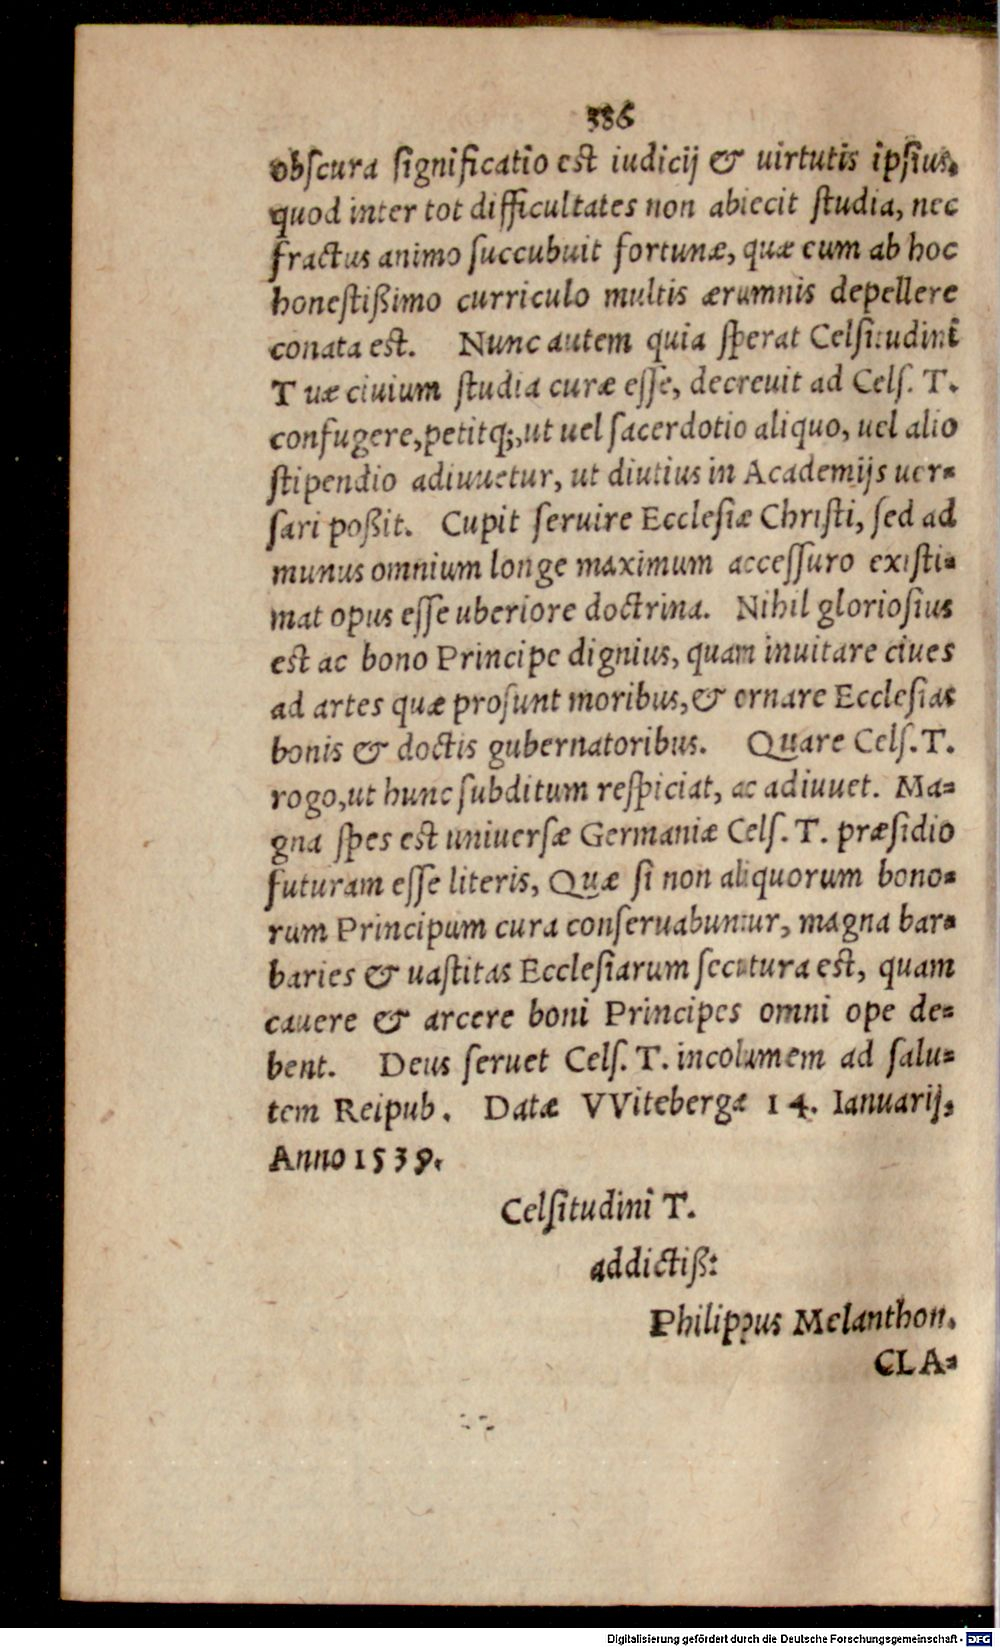 386
obſcura ſignificatio est iudicij & uirtutis ipſius,
quod inter tot difficultates non abiecit ſtudia, nec
fractus animo ſuccubuit fortunæ, quæ eum ab hoc
honeſtißimo curriculo multis ærumnis depellere
conata est. Nunc autem quia ſperat Celſitudini
Tuæ ciuium ſtudia curæ eſſe, decreuit ad Celſ. T.
confugere, petitq;, ut uel ſacerdotio aliquo, uel alio
ſtipendio adiuuetur, ut diutius in Academijs uer=
ſari poßit. Cupit ſeruire Eccleſiæ Chriſti, ſed ad
munus omnium longe maximum acceſſuro exiſti=
mat opus eſſe uberiore doctrina. Nihil glorioſius
est ac bono Principe dignius, quam inuitare ciues
ad artes quæ proſunt moribus, & ornare Eccleſias
bonis & doctis gubernatoribus. Quare Celſ. T.
rogo, ut hunc ſubditum reſpiciat, ac adiuuet. Ma=
gna ſpes est uniuerſæ Germaniæ Celſ. T. præſidio
futuram eſſe literis, Quæ ſi non aliquorum bono=
rum Principum cura conſeruabuntur, magna bar=
baries & uaſtitas Eccleſiarum ſecutura est, quam
cauere & arcere boni Principes omni ope de=
bent. Deus ſeruet Celſ. T. incolumem ad ſalu=
tem Reipub. Datæ VVitebergæ 14. Ianuarij,
Anno 1539.
Celſitudini T.
addictiß:
Philippus Melanthon.
CLA=
Digitalisierung gefördert durch die Deutsche Forschungsgemeinschaft - DFG